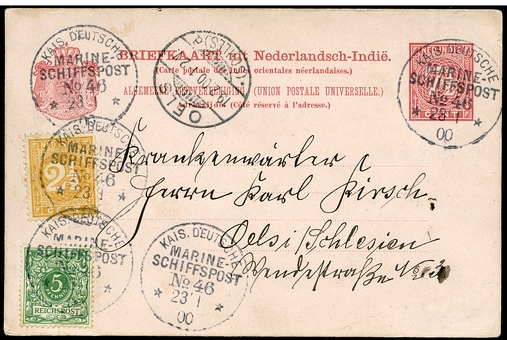 BRIEFKAART uit Nederlandsch-Indië.
(Carte postale des Indes orientales néerlandaises.)
ALGEMEENE POSTVEREENIGING (UNION POSTALE UNIVERSELLE.)
Adreszijde (Côté réservé à l'adresse.)
KAIS. DEUTSCHE
MARINE-
SCHIFFSPOST
No 46
* 23 1 *
KAIS. DEUTSCHE
MARINE-
SCHIFFSPOST
No 46
* 23 1 *
00
OELS
(SCHLES)
KAIS. DEUTSCHE
MARINE-
SCHIFFSPOST
No 46
* 23 1
2
Krankenwärter
Herrn Karl Kirsch.
Oels i/Schlesien
Wendestraße No
KAIS. DEUTSCHE
MARINE-
SCHIFFSPOST
5
REICHSPOST
KAIS. DEUTSCHE
MARINE-
SCHIFFSPOST
No 46
* 23 1 *
00